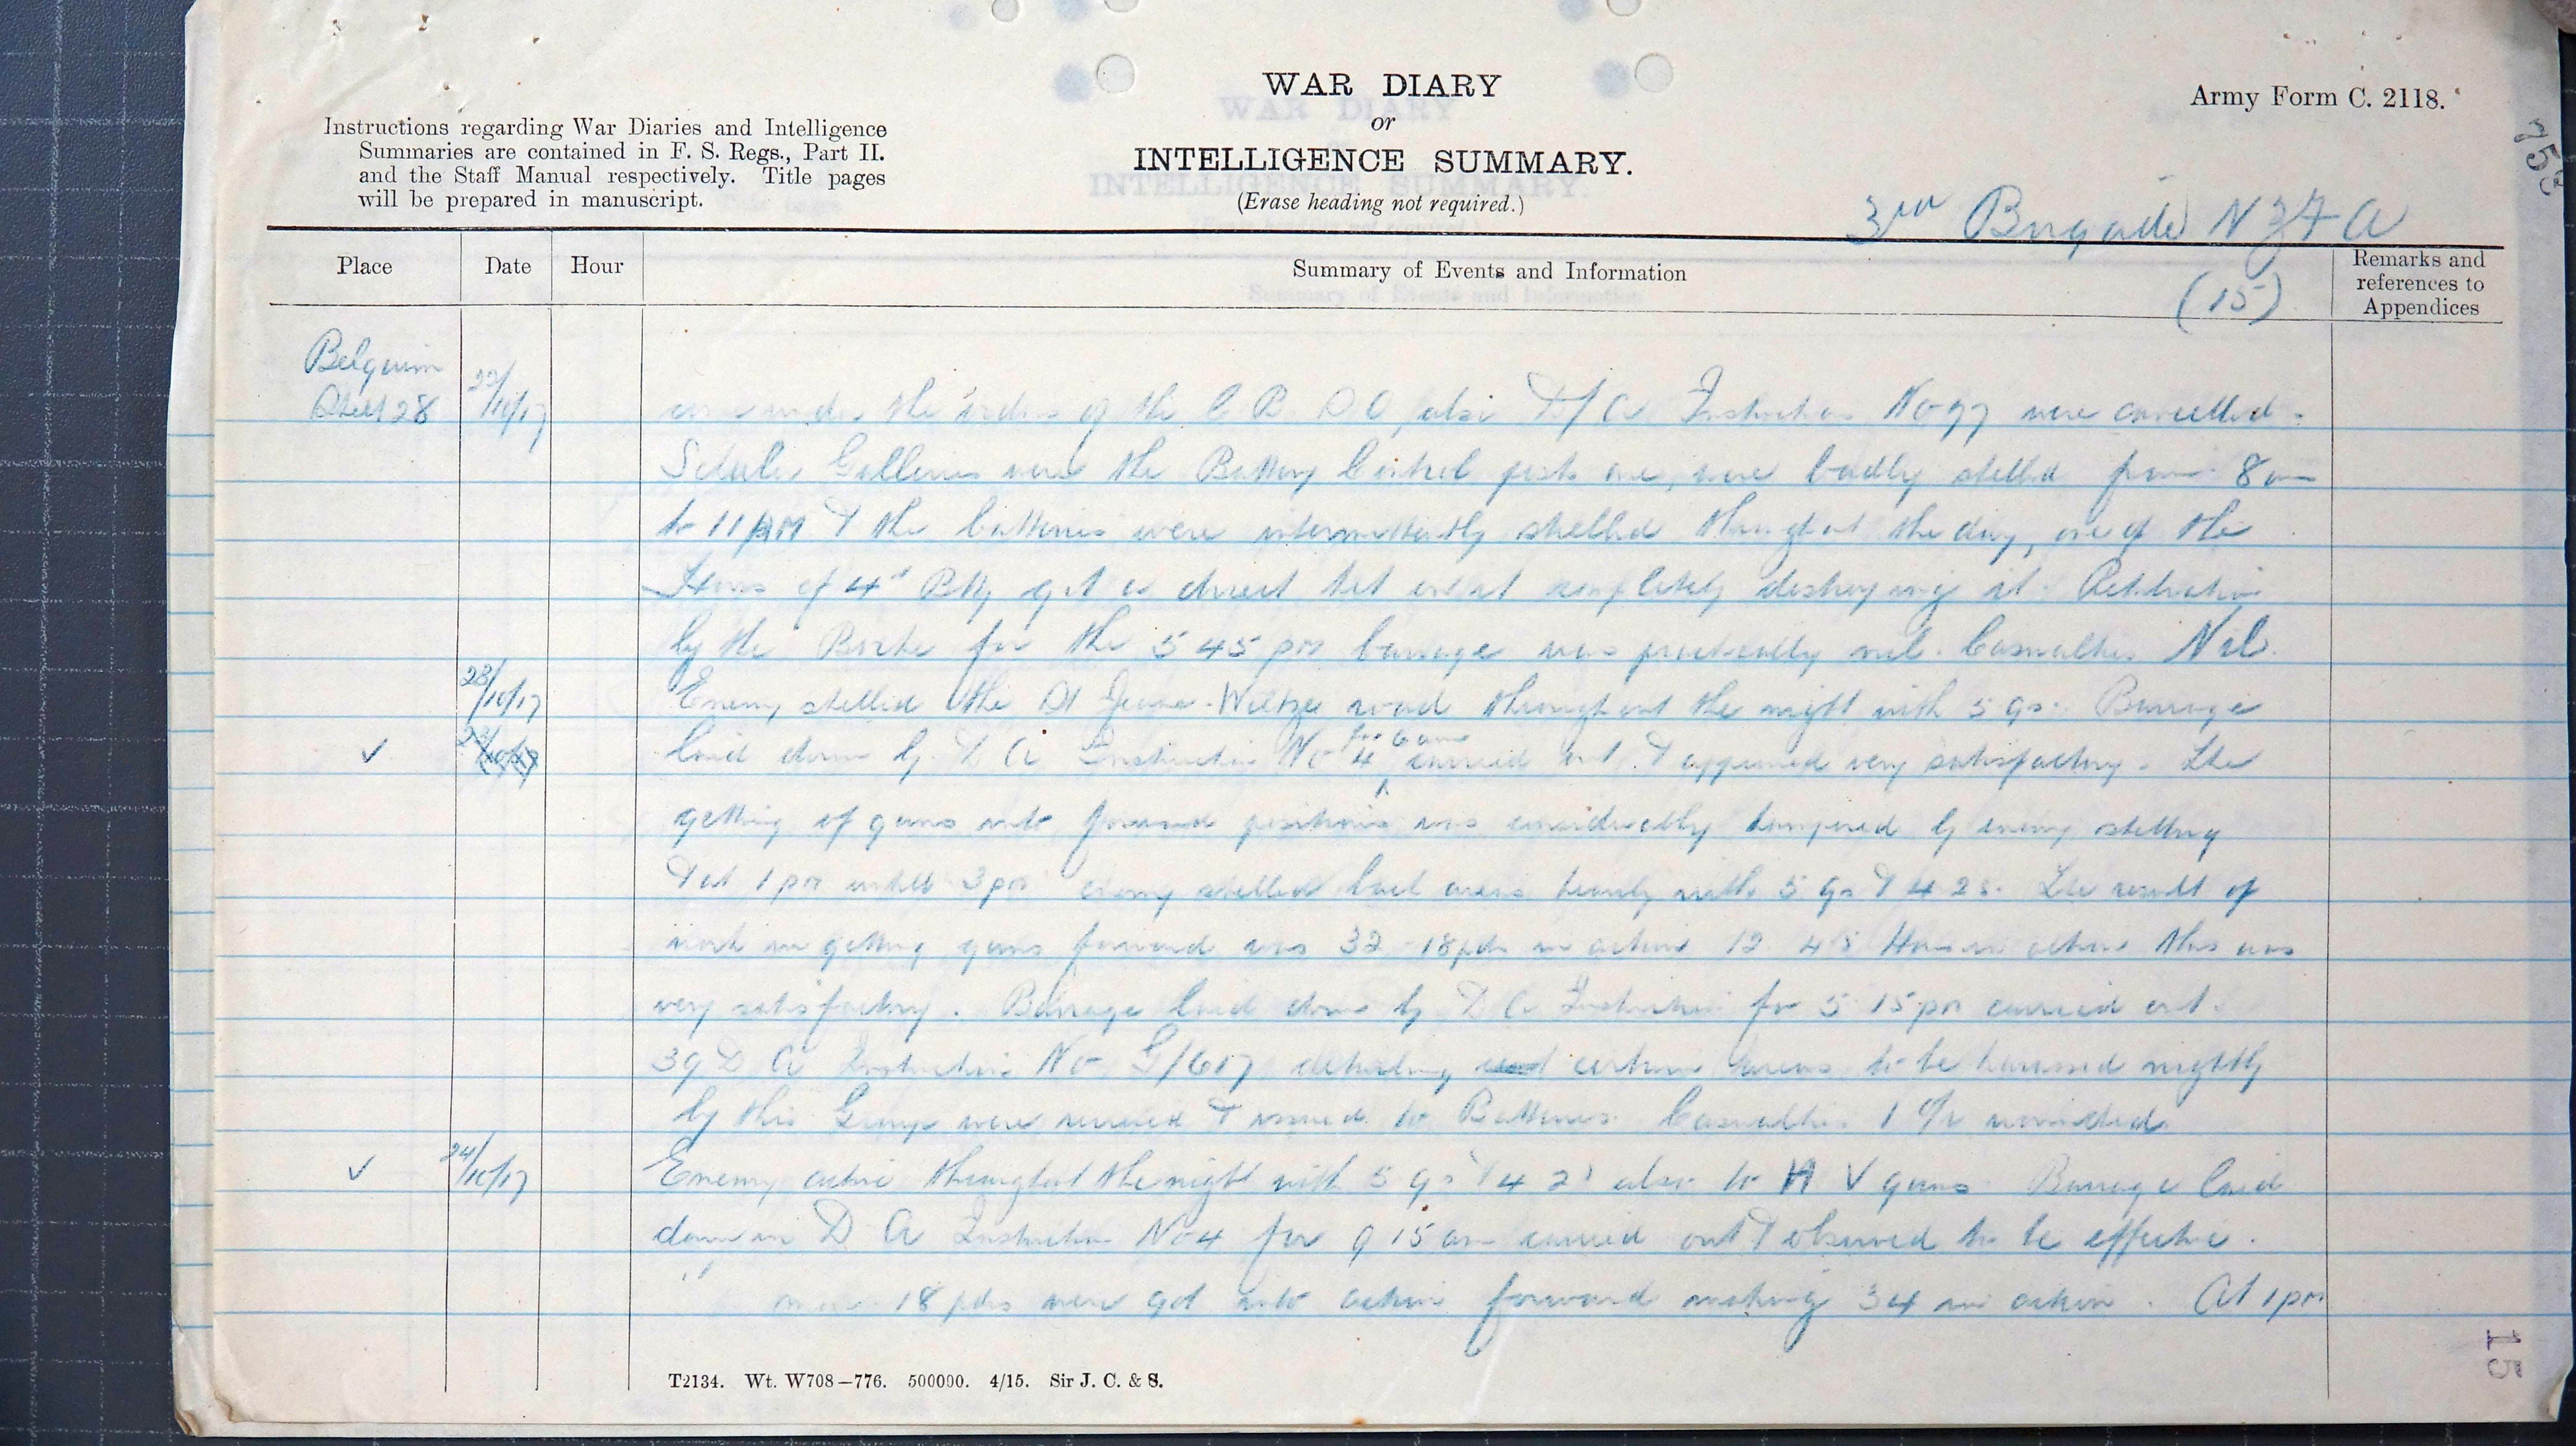 WAR DIARY
or
INTELLIGENCE SUMMARY.
(Erase heading not required.)
Army Form C. 2118.
Instructions regarding War Diaries and Intelligence
Summaries are contained in F. S. Regs., Part II.
and the Staff Manual respectively. Title pages
will be prepared in manuscript.
3rd Brigade N Z F A
Place Date Hour Summary of Events and Information Remarks and
references to
Appendices
(15)
Belguim
Sheet 28 22/10/17 come under the orders of the C B D O, also D/A Instructions No 97 were cancelled.
Galleries were the Battery Control posts are, were badly shelled from 8 am
to 11 PM & the batteries were intermittently shelled throughout the day, one of the
Hows of 4th Bty got a direct hit on it completely destroying it. Retaliation
by the Boche for the 5 45 pm barrage was practically nil. Casualties Nil.
23/10/17 Enemy shelled the St Jeane - Wieltze road throughout the night with 5 9s. Barrage
laid down by D A Instruction No 4 for 6 am carried out & appeared very satisfactory. The
getting of guns into forward positions was considerably hampered by enemy shelling
& at 1 pm untill 3 pm enemy shelled back areas heavily with 5 9s & 4 2s. The result of
work in getting guns forward was 32 18 pdrs in action 12 4 5 Hows in action this was
very satisfactory. Barrage laid down by D A Instruction for 5 15 pm carried out.
39 D A Instruction No G/617 detailing certain areas to be harassed nightly
by this Group were received & issued to Batteries. Casualties 1 O/R wounded
24/10/17 Enemy active throughout the night with 5 9s & 4 2s also H V guns. Barrage laid
down in D A Instruction No 4 for 9 15 am carried out & observed to be effective.
18 pdrs were got into action forward making 34 in action. At 1 pm
T2134. Wt. W708—776. 500000. 4/15. Sir J. C. & S.
15